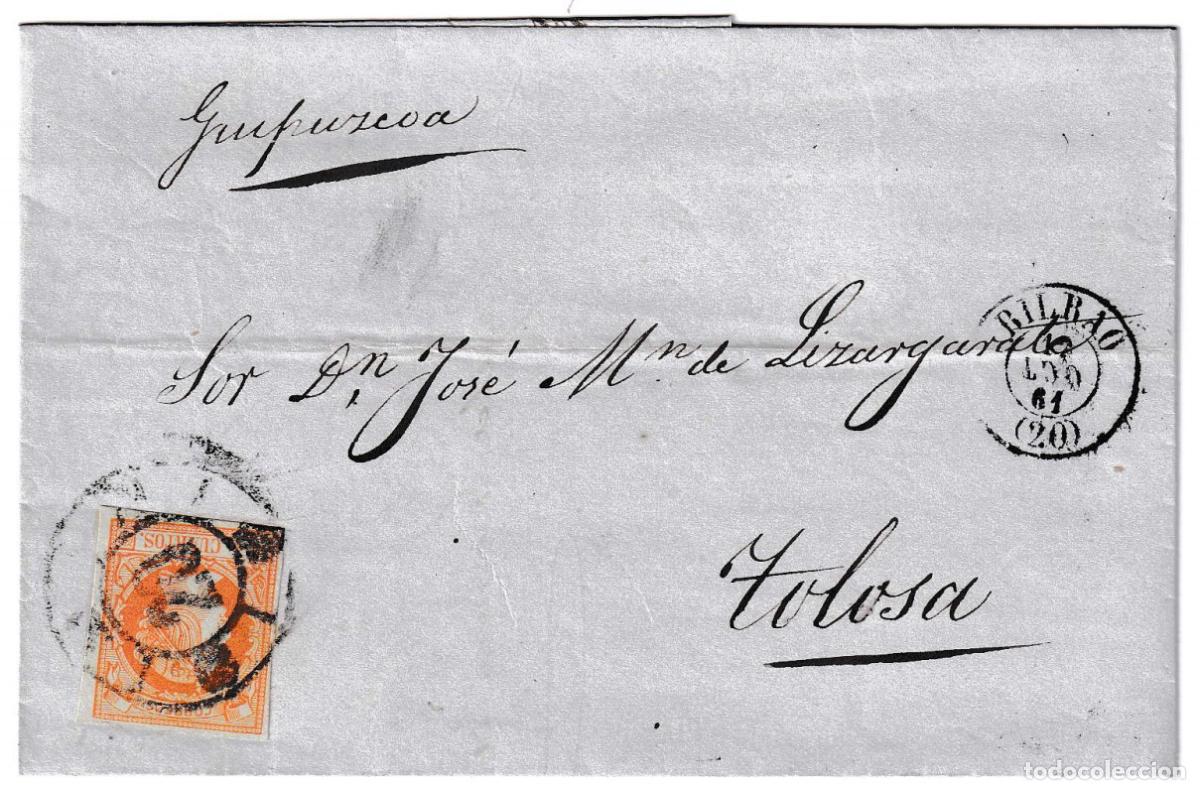 Guipuzcoa
Sor Dn José Mn de Lizargarate
BILBAO
61
(20)
Tolosa
CUARTOS.
todocoleccion